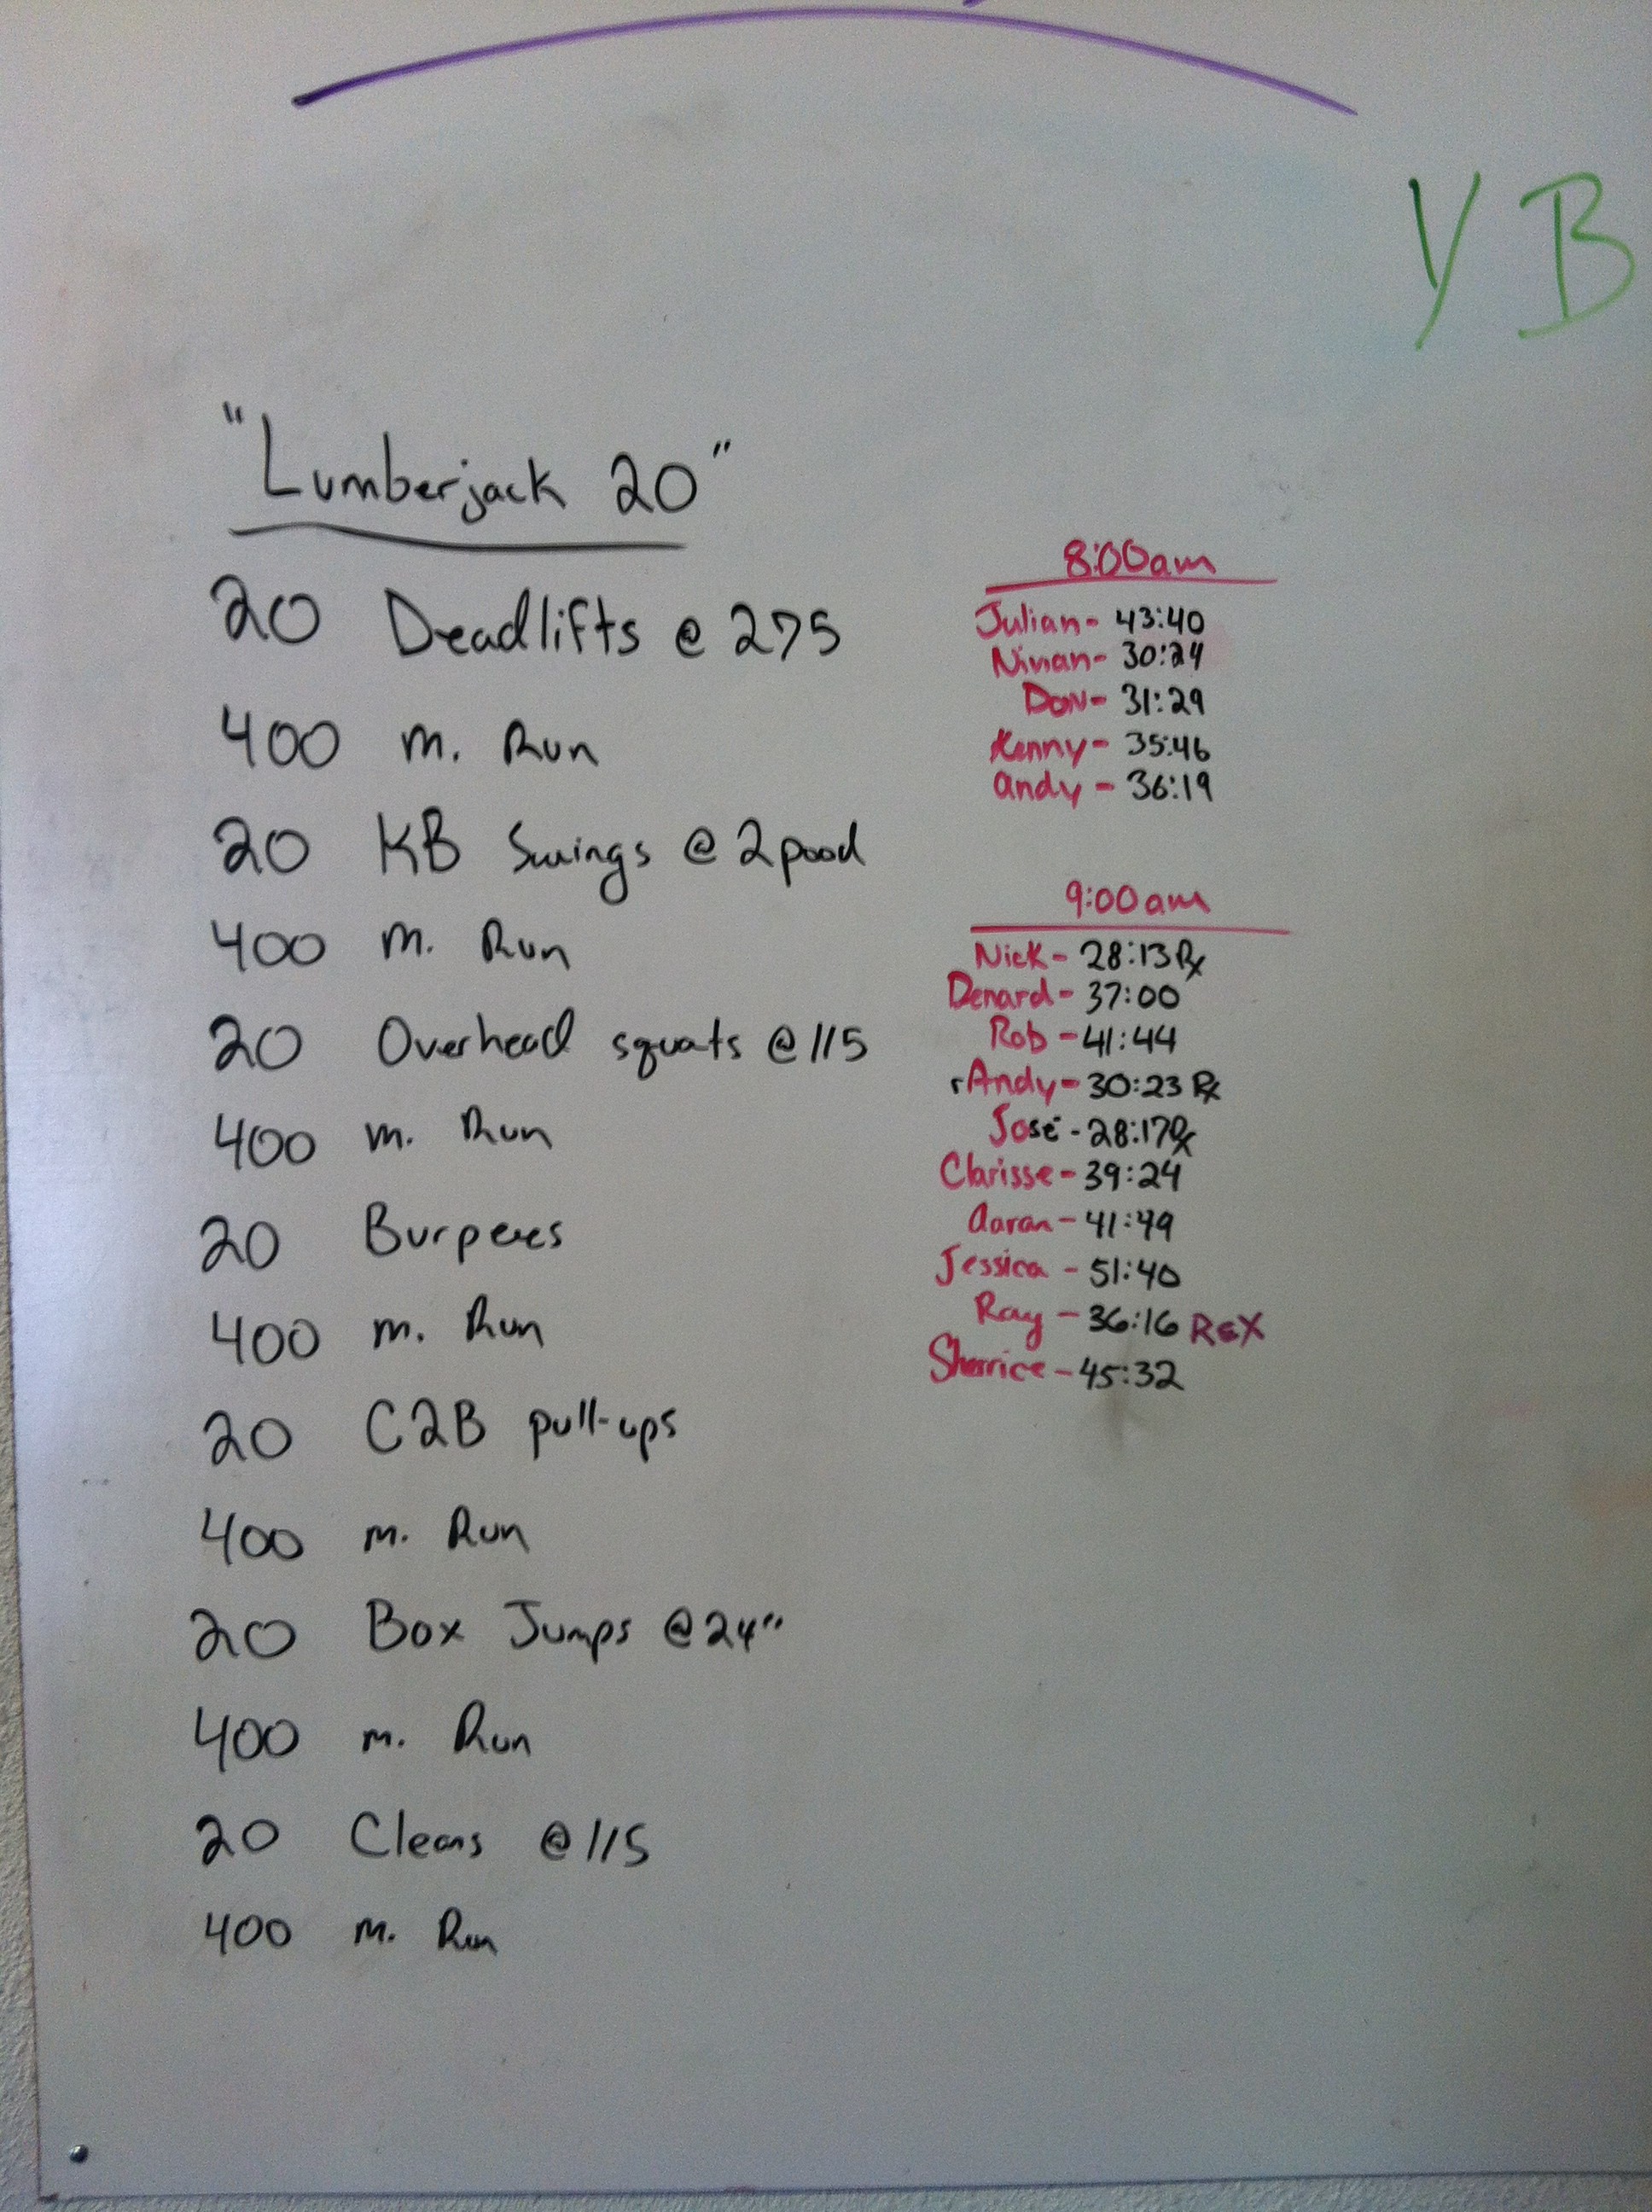 Y B
"Lumberjack 20"
20 Deadlifts @ 275
400 m. Run
20 KB Swings @ 2pood
400 m. Run
20 Overhead squats @ 115
400 m. Run
20 Burpees
400 m. Run
20 C2B pull-ups
400 m. Run
20 Box Jumps @ 24"
400 m. Run
20 Cleans @ 115
400 m. Run
8:00am
Julian- 43:40
Nivian- 30:24
Don- 31:29
Kenny- 35:46
Andy - 36:19
9:00am
Nick- 28:13 Rx
Denard- 37:00
Rob -41:44
rAndy- 30:23 Rx
José - 28:17 Rx
Clarisse- 39:24
Aaron- 41:49
Jessica - 51:40
Ray - 36:16 REX
Sherrice - 45:32